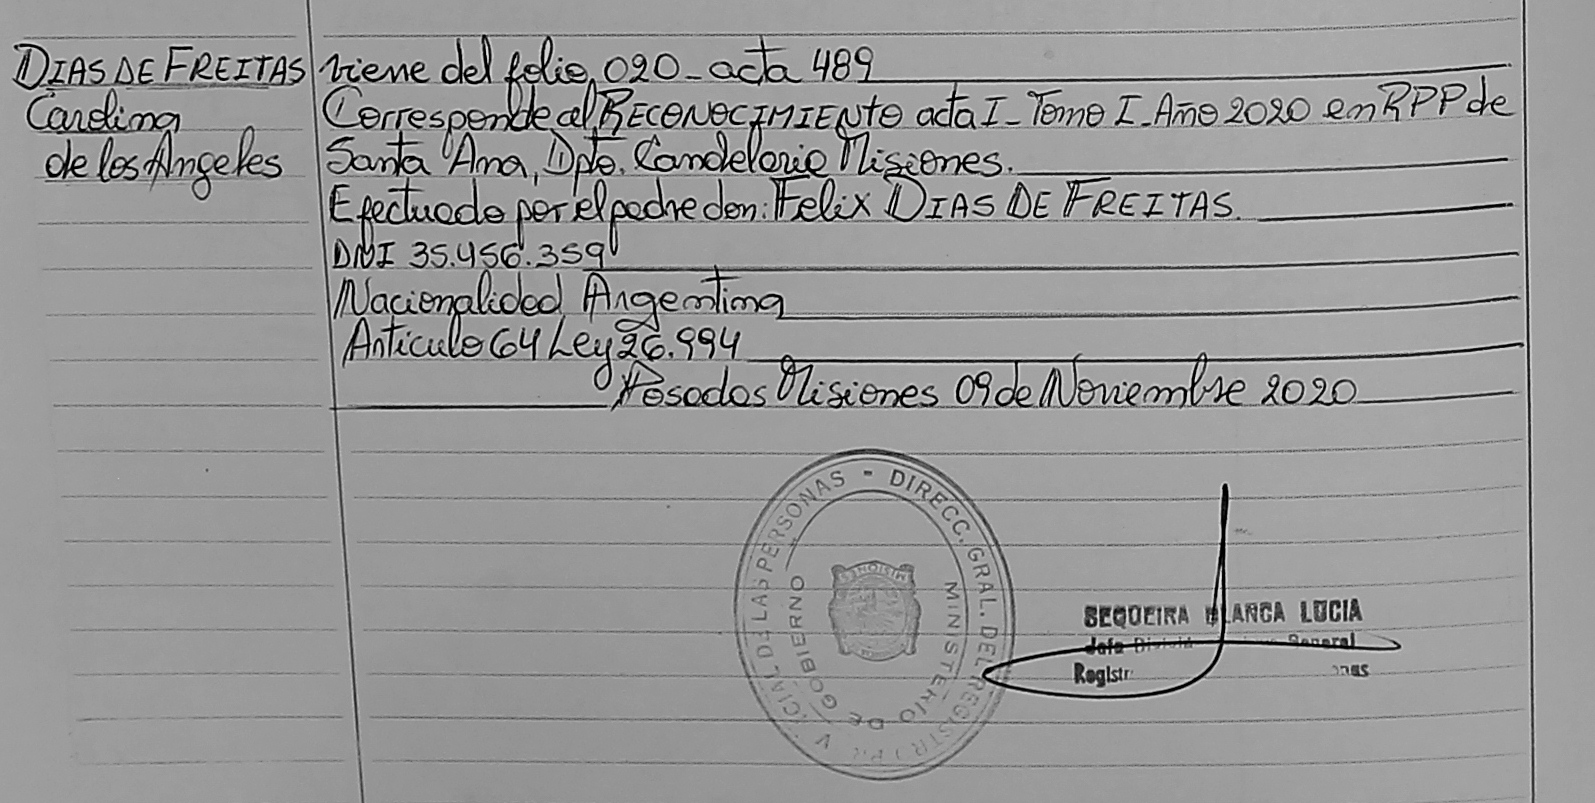 DIAS DE FREITAS
Carolina
de los Angeles
viene del folio 020 - acta 489
Corresponde al RECONOCIMIENTO acta I - Tomo I - Año 2020 en RPP de
Santa Ana, Dpto. Candelaria Misiones.
Efectuado por el padre don: Felix DIAS DE FREITAS.
DNI 35.456.359
Nacionalidad Argentina
Articulo 64 Ley 26.994
Posadas Misiones 09 de Noviembre 2020
DIRECC. GRAL. DEL REGISTR PR V CIAL DE LAS PERSONAS -
MINISTERIO DE GOBIERNO
MISIONES
SEQUEIRA BLANCA LUCIA
Jefe General
Registr